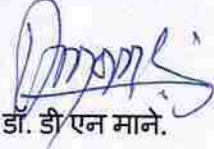 डॉ. डी एन माने.